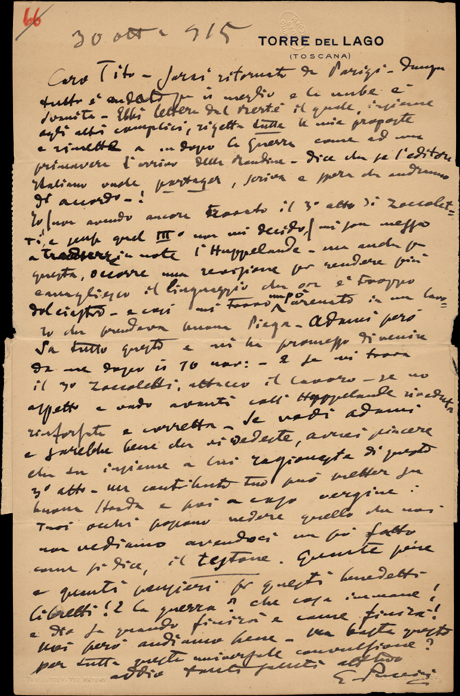 66
30 ott e 915
TORRE DEL LAGO
(TOSCANA)
Caro Tito – Sarai ritornato da Parigi – Dunque
tutto è andato pel meglio e la nube è
svanita – Ebbi lettera dal Bertè il quale, insieme
agli altri complici, rigetta tutte le mie proposte
e rimette a a dopo la guerra come ad una
primavera l'arrivo delle rondini – dice che se l'editore
italiano vuole partager, scriva e spera che andranno
di accordo – !
Io (non avendo ancora trovato il 3º atto di Zoccolet-
ti, e senza quel IIIº non mi decido) mi son messo
a tradurre in note l'Huppelande – ma anche per
questa, occorre una revisione per rendere più
canagliesco il linguaggio che ora è troppo
dolciastro – e così mi trovo un pò arenato in un lavo-
ro che prendeva buona piega – Adami però
sa tutto questo e mi ha promesso di venire
da me dopo il 10 nov: – E se mi trova
il 3º Zoccoletti, attacco il lavoro – se no
aspetto e vado avanti coll' Huppelande riveduta
rinforzata e corretta – Se vedi Adami
e sarebbe bene che vi vedeste, avrei piacere
che su insieme a lui ragionaste di questo
3º atto – un contributo tuo può metter su
buona strada e poi a caso vergine i
tuoi occhi possono vedere quello che noi
non vediamo avendoci un po' fatto
come si dice, il testone. Quante pene
e quanti pensieri per questi benedetti
libretti! E la guerra? che cosa immane!
e dio sa quando finirà e come finirà!
noi però andiamo bene – ma basta questo
per tutta questa universale convulsione?
addio tanti saluti affettuosi
G. Puccini